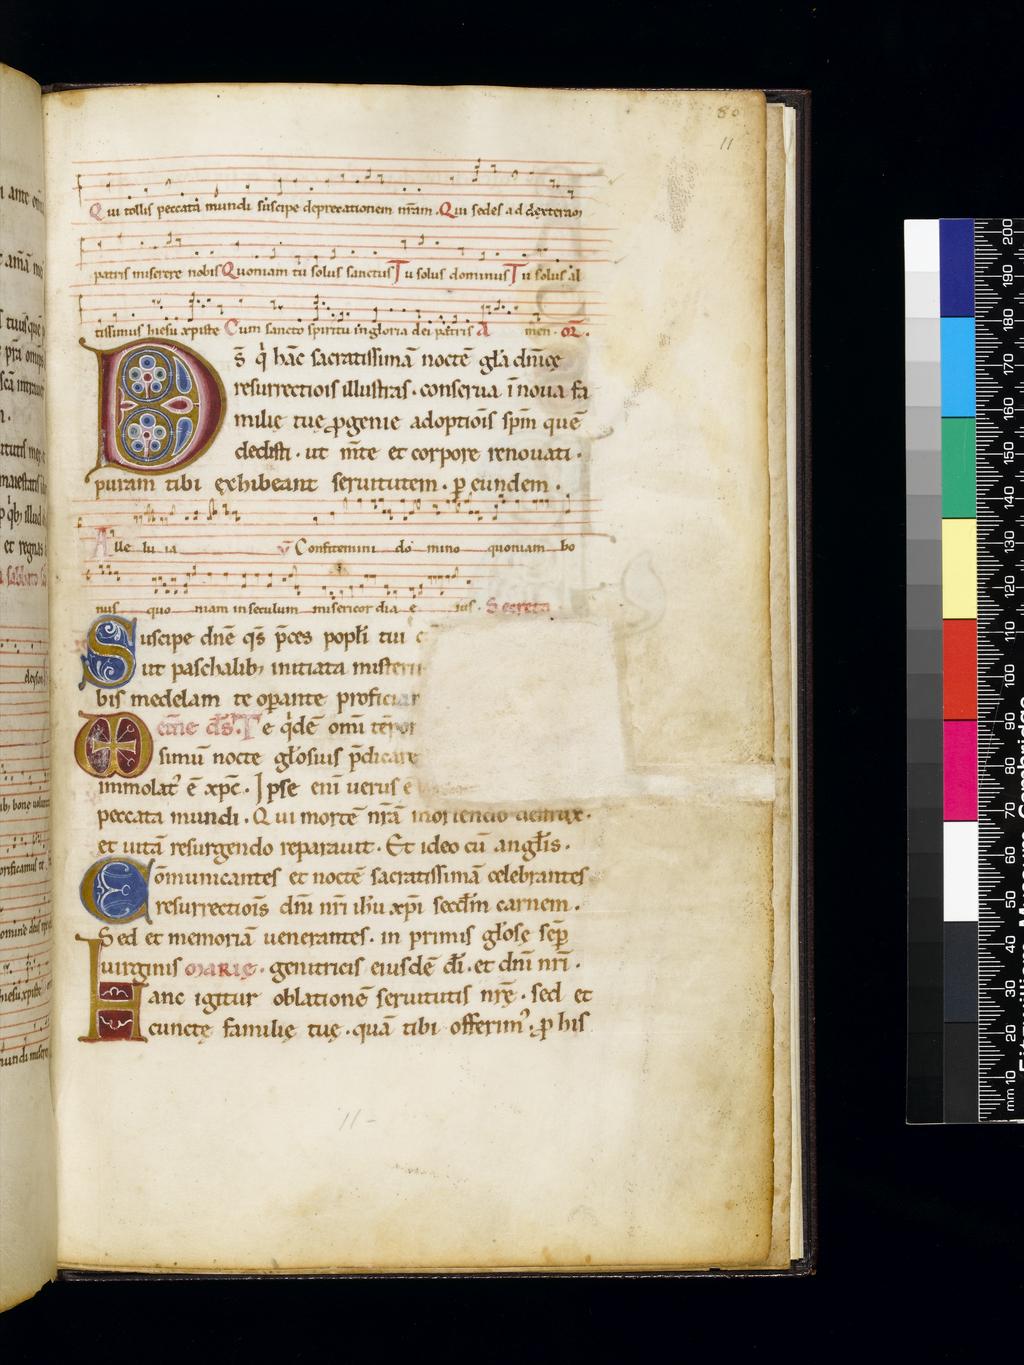 80
11
Qui tollis peccata mundi suscipe deprecationem nr̄am. Qui sedes ad dexteram
patris miserere nobis Quoniam tu solus sanctus Tu solus dominus Tu solus al
tissimus hiesu xpiste Cum sancto spiritu in gloria dei patris A men. or̄.
Ds̄ q̇ hāc sacratissimā noctē gl̄a dn̄icę
resurrectiōis illustras. conserua ī noua fa
milię tuę ꝓgenie adoptiōis sp̄m quē
dedisti. ut m̄te et corpore renouati.
puram tibi exhibeant seruitutem. ꝑ eundem.
Alle lu ia ℣ Confitemini do mino quoniam bo
nus quo niam in seculum misericor dia e ius. Secreta
Suscipe dn̄e qs̄ p̄ces popl̄i tui
ut paschalibꝫ initiata misterii
bis medelam te oꝑante proficiar
etn̄e ds̄. Te q̇dē om̄i tēpor
simū nocte gl̄osius p̄dicare
immolat᾿ ē xp̄c. Ipse eni uerus ē
peccata mundi. Qui mortē nr̄ā moriendo
et uitā resurgendo reparauit. Et ideo cū angl̄is.
Cōmunicantes et noctē sacratissimā celebrantes
resurrectiōis dn̄i nr̄i ih̄u xp̄i secd̄m carnem.
Sed et memoriā uenerantes. in primis gl̄osę sēp̄
uirginis MARIĘ. genitricis eiusdē dī. et dn̄i nr̄i.
Hanc igitur oblationē seruitutis nr̄ę. sed et
cunctę familię tuę. quā tibi offerim᾿. ꝓ his
11-
mm 10 20 30 40 50 60 70 80 90 100 110 120 130 140 150 160 170 180 190 200